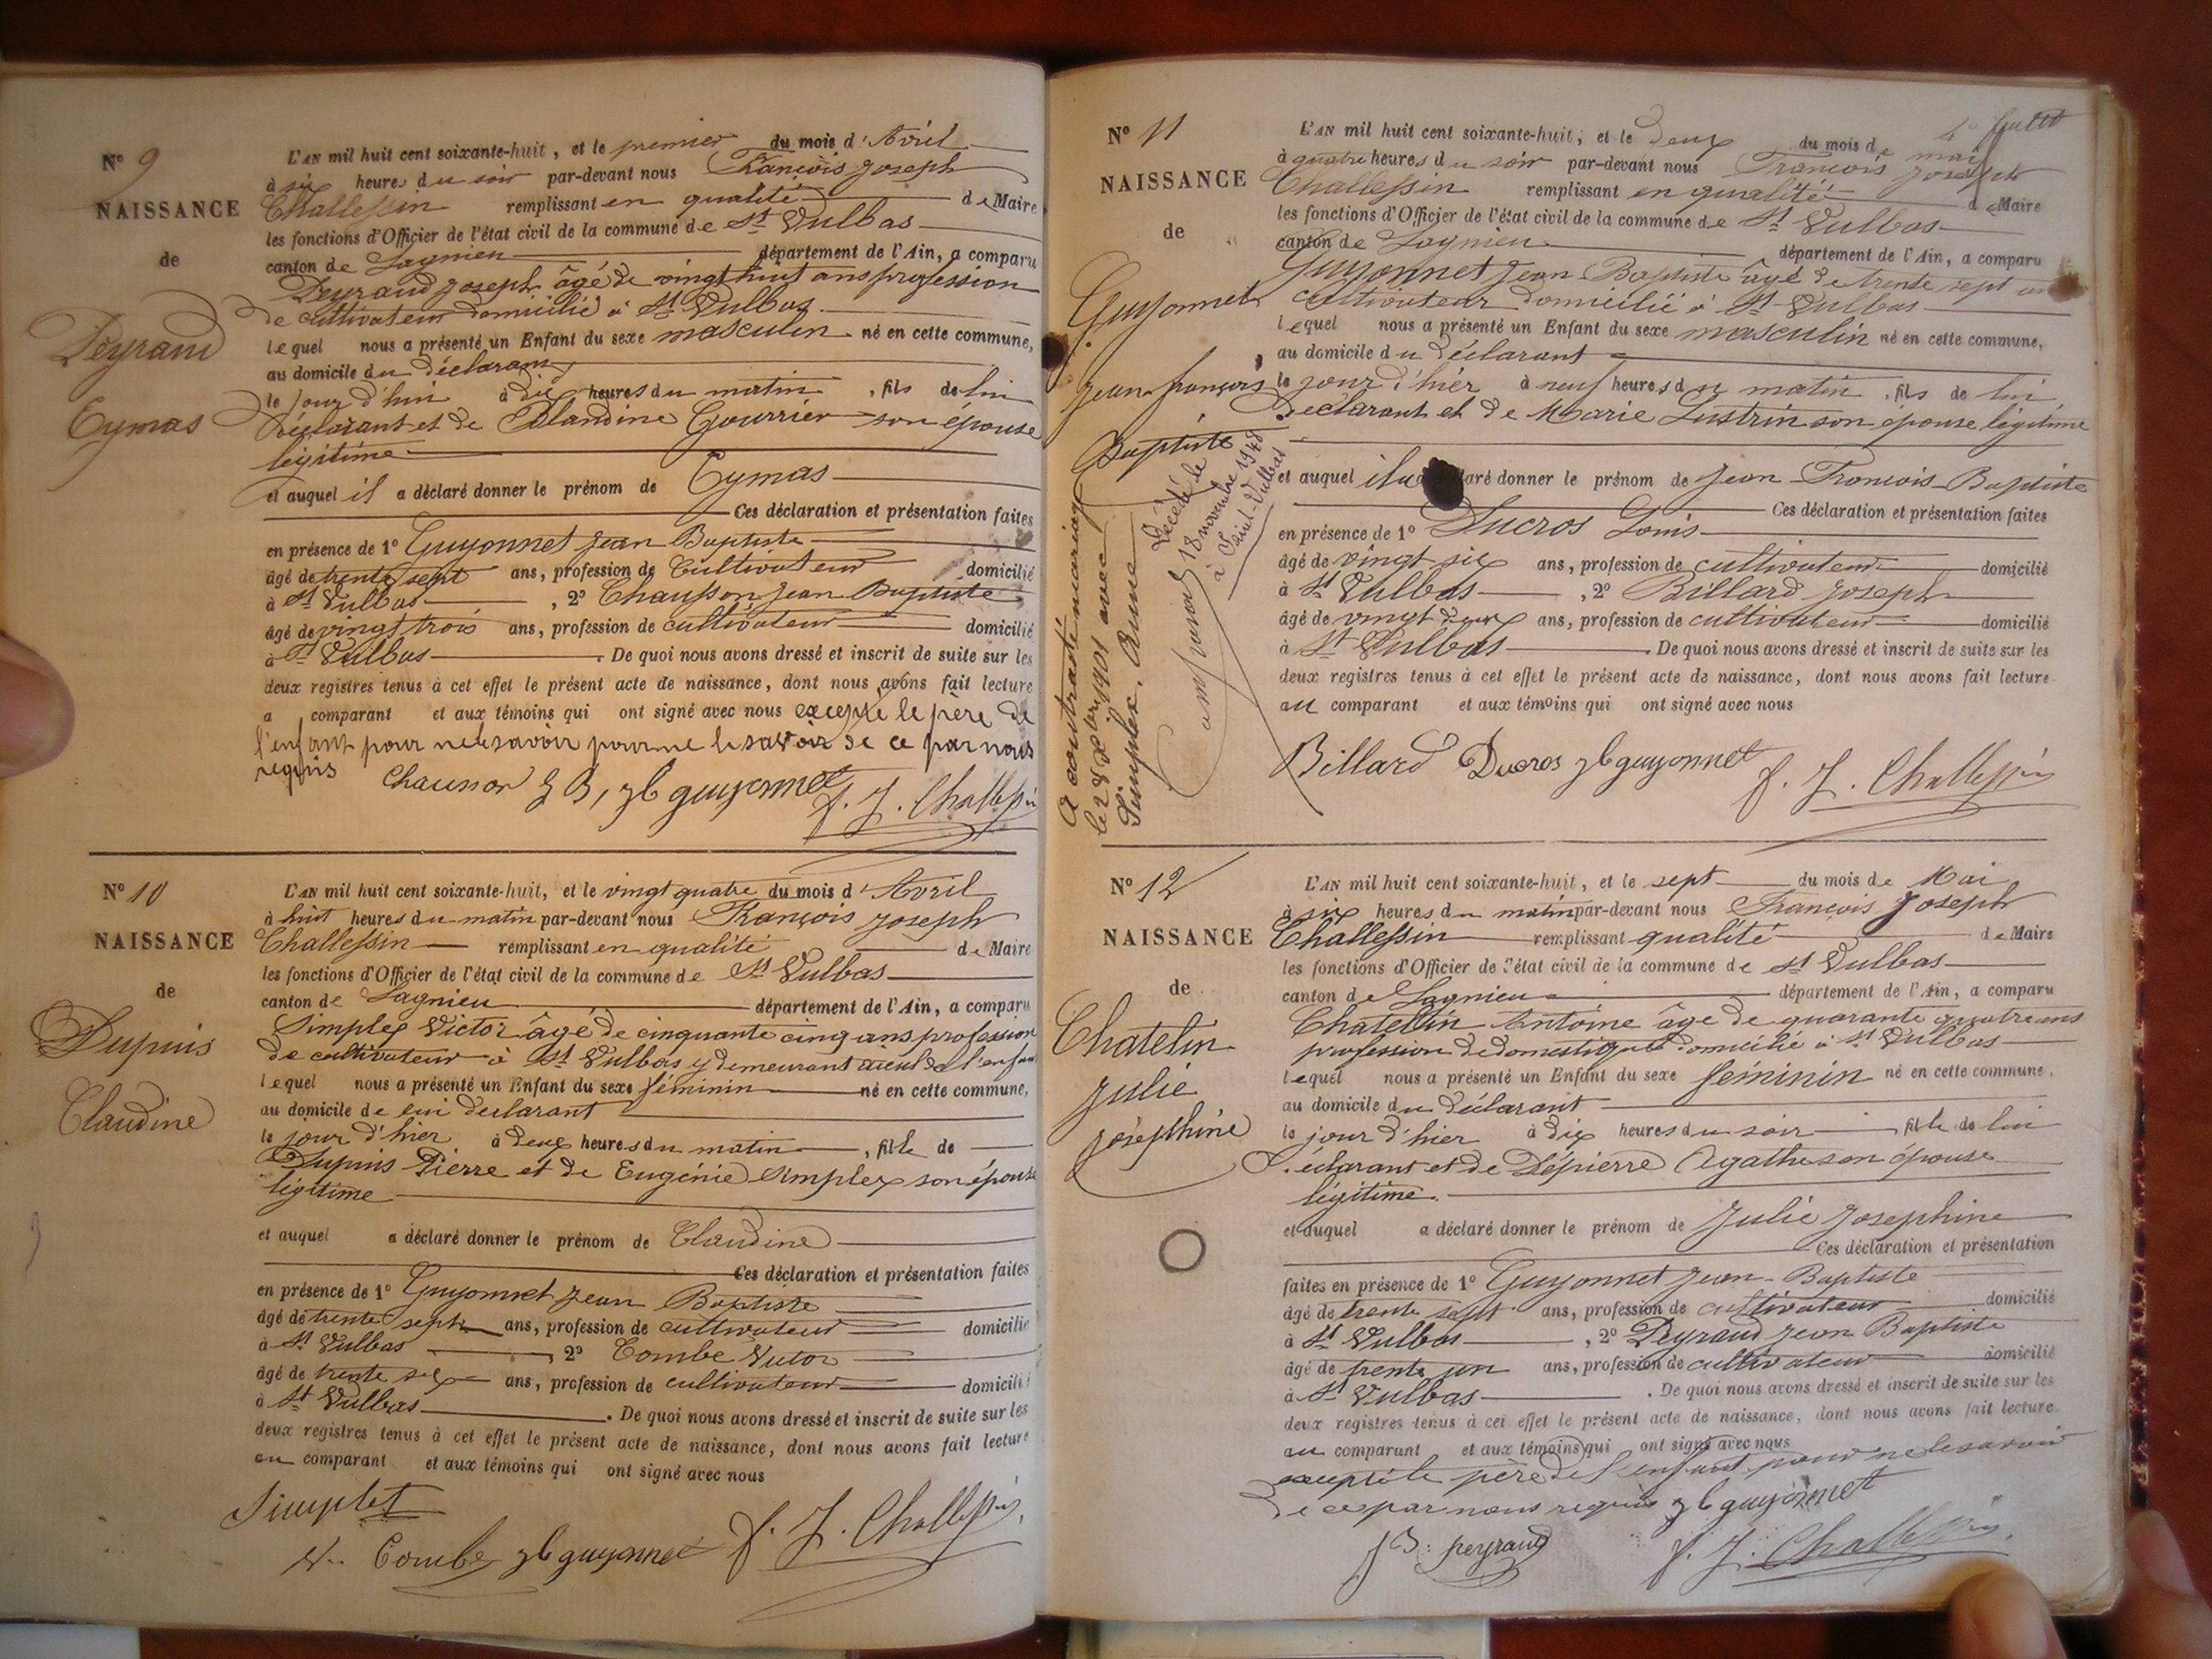 N° 9
NAISSANCE
de
Peyraud
Cymas
L'AN mil huit cent soixante-huit, et le premier du mois d'Avril
à six heures du soir par-devant nous François Joseph
Challessin remplissant en qualité de Maire
les fonctions d'Officier de l'état civil de la commune de St Vulbas
canton de Lagnieu département de l'Ain, a comparu
Peyraud Joseph âgé de vingt huit ans profession
de cultivateur domicilié à St Vulbas
lequel nous a présenté un Enfant du sexe masculin né en cette commune,
au domicile du déclarant
le jour d'hui à dix heures du matin, fils de lui
déclarant et de Claudine Gourrier son épouse
légitime
et auquel il a déclaré donner le prénom de Cymas
Ces déclaration et présentation faites
en présence de 1° Guyonnet Jean Baptiste
âgé de trente sept ans, profession de Cultivateur domicilié
à St Vulbas, 2° Chausson Jean Baptiste
âgé de vingt trois ans, profession de cultivateur domicilié
à St Vulbas. De quoi nous avons dressé et inscrit de suite sur les
deux registres tenus à cet effet le présent acte de naissance, dont nous avons fait lecture
a comparant et aux témoins qui ont signé avec nous excepté le père de
l'enfant pour ne le savoir pour ne le savoir de ce par nous
requis
Chausson J B, jb guyonnet f. J. Challessin
N° 10
NAISSANCE
de
Dupuis
Claudine
L'AN mil huit cent soixante-huit, et le vingt quatre du mois d'Avril
à huit heures du matin par-devant nous François Joseph
Challessin remplissant en qualité de Maire
les fonctions d'Officier de l'état civil de la commune de St Vulbas
canton de Lagnieu département de l'Ain, a comparu
Simplex Victor âgé de cinquante cinq ans profession
de cultivateur à St Vulbas y demeurant aieul de l'enfant
lequel nous a présenté un Enfant du sexe féminin né en cette commune,
au domicile de lui declarant
le jour d'hier à deux heures du matin, fille de
Dupuis Pierre et de Eugénie Simplex son épouse
légitime
et auquel a déclaré donner le prénom de Claudine
Ces déclaration et présentation faites
en présence de 1° Guyonnet Jean Baptiste
âgé de trente sept ans, profession de cultivateur domicilié
à St Vulbas, 2° Combe Victor
âgé de trente six ans, profession de cultivateur domicilié
à St Vulbas. De quoi nous avons dressé et inscrit de suite sur les
deux registres tenus à cet effet le présent acte de naissance, dont nous avons fait lecture
au comparant et aux témoins qui ont signé avec nous
Simplet
Combe jb guyonnet f. J. Challessin
N° 11
NAISSANCE
de
Guyonnet
Jean françois
Baptiste
A contracté mariage
le 28 Xbre 1901 avec
Simplex, Anne
Décédé le
18 novembre 1948
à Saint-Vulbas
L'AN mil huit cent soixante-huit; et le deux du mois de mai
à quatre heures du soir par-devant nous François Joseph
Challessin remplissant en qualité de Maire
les fonctions d'Officier de l'état civil de la commune de St Vulbas
canton de Lagnieu département de l'Ain, a comparu
Guyonnet Jean Baptiste âgé de trente sept ans
cultivateur domicilié à St Vulbas
lequel nous a présenté un Enfant du sexe masculin né en cette commune,
au domicile du déclarant
le jour d'hier à neuf heures du matin, fils de lui
Déclarant et de Marie Lustrin son épouse légitime
et auquel il a déclaré donner le prénom de Jean François Baptiste
Ces déclaration et présentation faites
en présence de 1° Ducros Louis
âgé de vingt six ans, profession de cultivateur domicilié
à St Vulbas, 2° Billard Joseph
âgé de vingt deux ans, profession de cultivateur domicilié
à St Vulbas. De quoi nous avons dressé et inscrit de suite sur les
deux registres tenus à cet effet le présent acte de naissance, dont nous avons fait lecture
au comparant et aux témoins qui ont signé avec nous
Billard Ducros jb guyonnet f. J. Challessin
N° 12
NAISSANCE
de
Chatelin
Julie
Joséphine
L'AN mil huit cent soixante-huit, et le sept du mois de Mai
à six heures du matin par-devant nous François Joseph
Challessin remplissant qualité de Maire
les fonctions d'Officier de l'état civil de la commune de St Vulbas
canton de Lagnieu département de l'Ain, a comparu
Chatellin Antoine âgé de quarante quatre ans
profession de domestique domicilié à St Vulbas
lequel nous a présenté un Enfant du sexe féminin né en cette commune,
au domicile du déclarant
le jour d'hier à dix heures du soir fille de lui
Déclarant et de Dépierre Agathe son épouse
légitime.
et auquel a déclaré donner le prénom de Julie Josephine
Ces déclaration et présentation
faites en présence de 1° Guyonnet Jean Baptiste
âgé de trente sept ans, profession de cultivateur domicilié
à St Vulbas, 2° Peyraud Jean Baptiste
âgé de trente un ans, profession de cultivateur domicilié
à St Vulbas. De quoi nous avons dressé et inscrit de suite sur les
deux registres tenus à cet effet le présent acte de naissance, dont nous avons fait lecture
au comparant et aux témoins qui ont signé avec nous
excepté le père de l'enfant pour ne le savoir
de ce par nous requis jb guyonnet
J B. peyraud f. J. Challessin